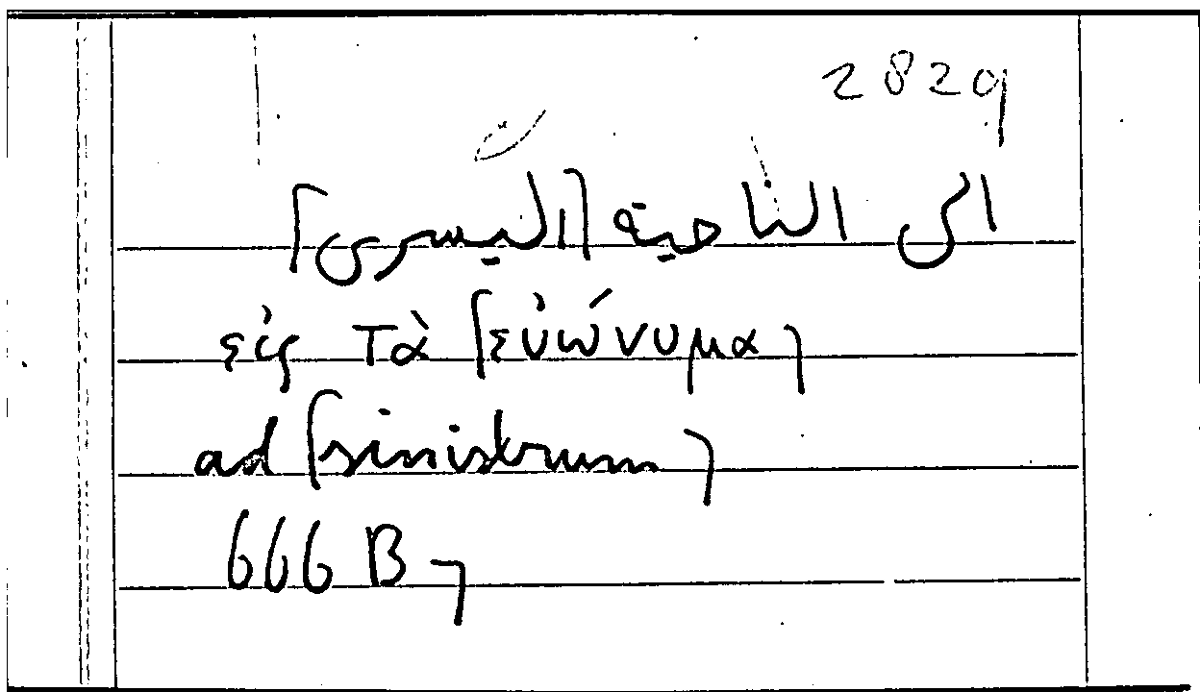 2829
الى الناحية ⌈اليسرى⌉
εἰς τὰ ⌈εὐώνυμα⌉
ad ⌈sinistrum⌉
666 B ⌉